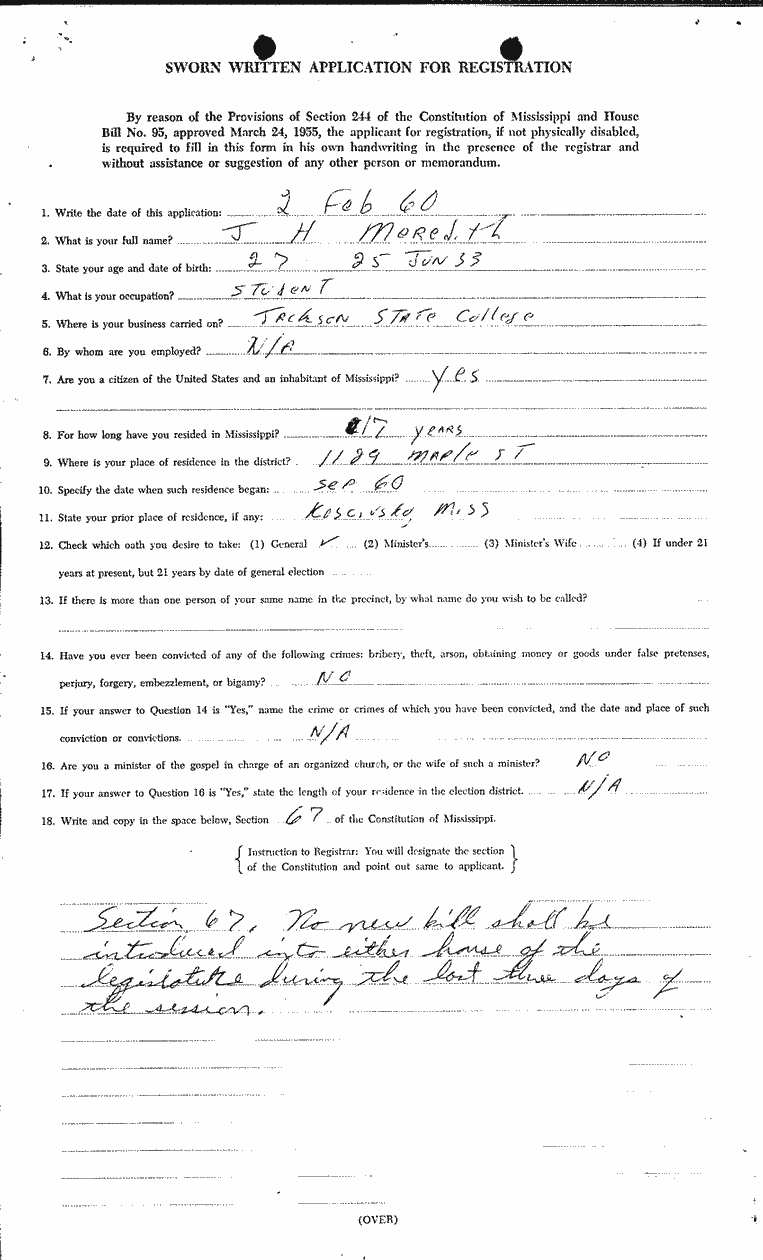 SWORN WRITTEN APPLICATION FOR REGISTRATION
By reason of the Provisions of Section 244 of the Constitution of Mississippi and House
Bill No. 95, approved March 24, 1955, the applicant for registration, if not physically disabled,
is required to fill in this form in his own handwriting in the presence of the registrar and
without assistance or suggestion of any other person or memorandum.
1. Write the date of this application: 2 Feb 60
2. What is your full name? J H Meredith
3. State your age and date of birth: 27 25 JUN 33
4. What is your occupation? STUDENT
5. Where is your business carried on? JACKSON STATE College
6. By whom are you employed? N/A
7. Are you a citizen of the United States and an inhabitant of Mississippi? yes
8. For how long have you resided in Mississippi? 17 years
9. Where is your place of residence in the district? 1129 MAPLE ST
10. Specify the date when such residence began: Sep 60
11. State your prior place of residence, if any: Kosciusko, Miss
12. Check which oath you desire to take: (1) General ✓ (2) Minister's (3) Minister's Wife (4) If under 21
years at present, but 21 years by date of general election
13. If there is more than one person of your same name in the precinct, by what name do you wish to be called?
14. Have you ever been convicted of any of the following crimes: bribery, theft, arson, obtaining money or goods under false pretenses,
perjury, forgery, embezzlement, or bigamy? NO
15. If your answer to Question 14 is "Yes," name the crime or crimes of which you have been convicted, and the date and place of such
conviction or convictions. N/A
16. Are you a minister of the gospel in charge of an organized church, or the wife of such a minister? NO
17. If your answer to Question 16 is "Yes," state the length of your residence in the election district. N/A
18. Write and copy in the space below, Section 67 of the Constitution of Mississippi.
Instruction to Registrar: You will designate the section
of the Constitution and point out same to applicant.
Section 67. No new bill shall be
introduced into either house of the
legislature during the last three days of
the session.
(OVER)